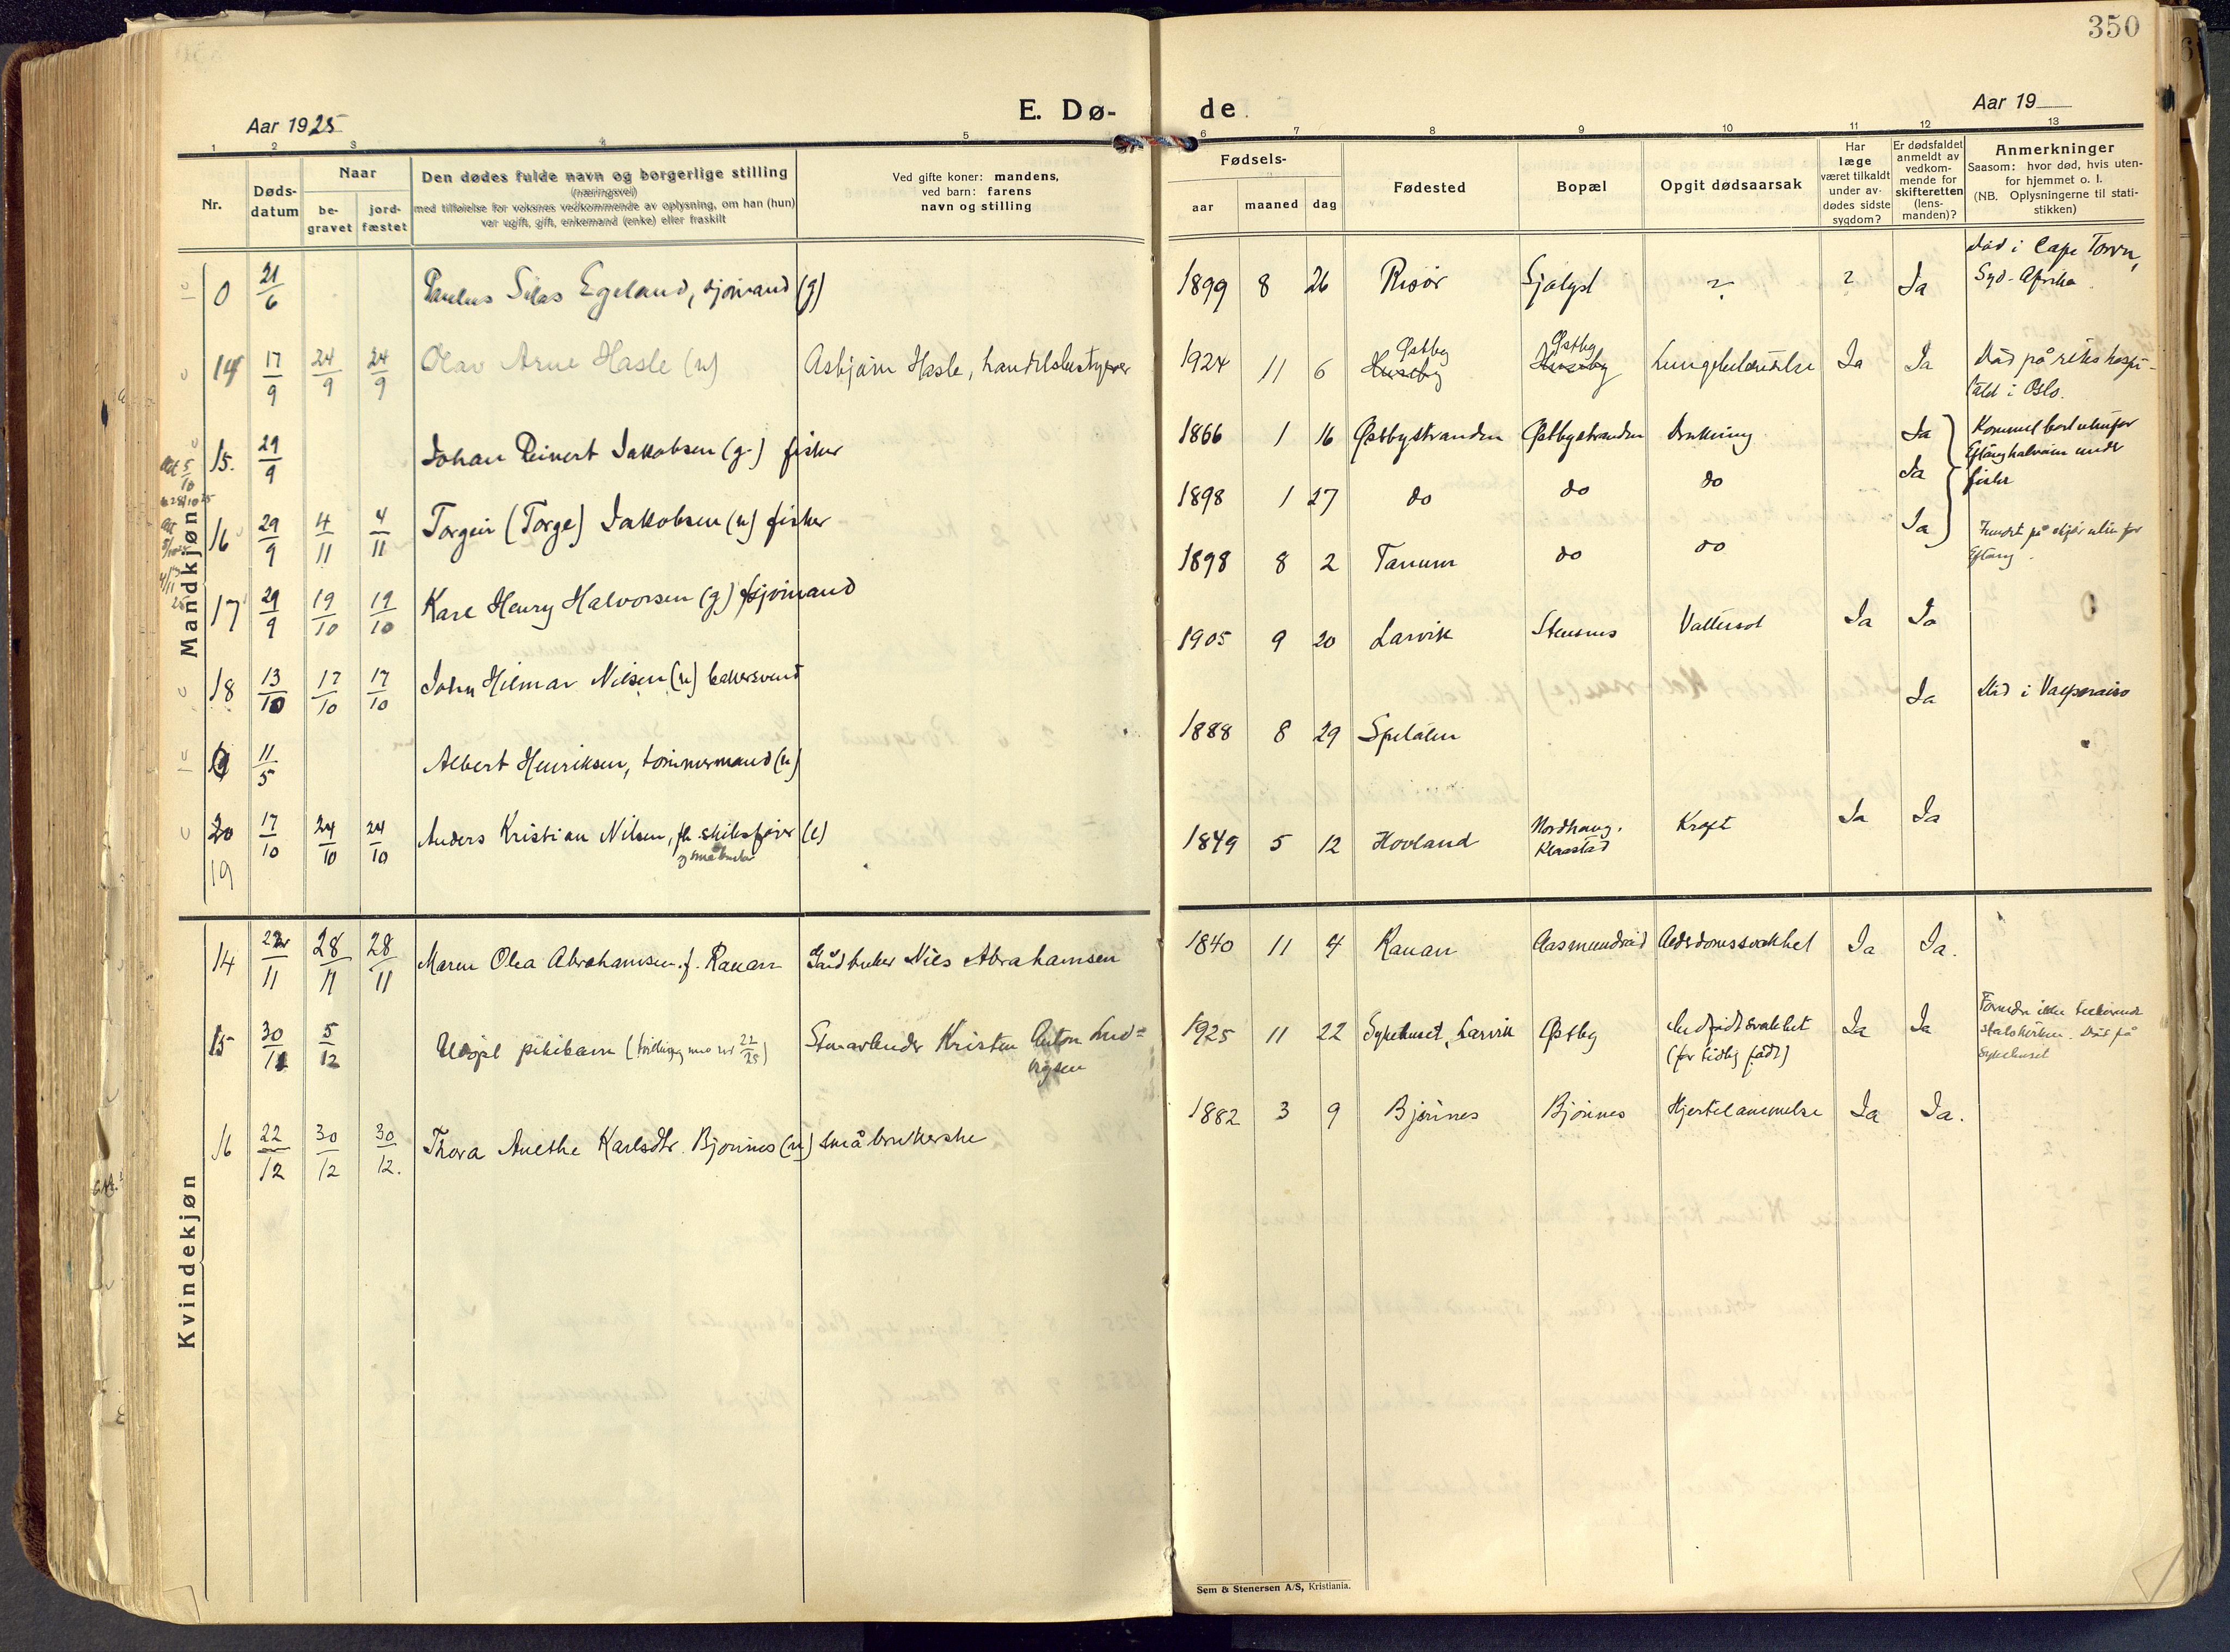 350
Aar 1925
E. Dø-
de
Aar 19
1 2 3 4 5 6 7 8 9 10 11 12 13
Nr.
Døds-
datum
Naar
be-
gravet
jord-
fæstet
Den dødes fulde navn og borgerlige stilling
(næringsvei)
med tilføielse for voksnes vedkommende av oplysning, om han (hun)
var ugift, gift, enkemand (enke) eller fraskilt
Ved gifte koner: mandens,
ved barn: farens
navn og stilling
Fødsels-
aar
maaned
dag
Fødested
Bopæl
Opgit dødsaarsak
Har
læge
været tilkaldt
under av-
dødes sidste
sygdom?
Er dødsfaldet
anmeldt av
vedkom-
mende for
skifteretten
(lens-
manden)?
Anmerkninger
Saasom: hvor død, hvis uten-
for hjemmet o. l.
(NB. Oplysningerne til stati-
stikken)
Mandkjøn
0 21/6 Paulus Silas Egeland, sjømand (g) 1899 8 26 Risør Sjølyst ? ? Ja Død i Cape Town,
Syd-Afrika
14 17/9 24/9 24/9 Olav Arne Hasle (u) Asbjørn Hasle, handelsbestyrer 1924 11 6 Østby Østby Lungebetændelse Ja Ja Død på rikshospi-
talet i Oslo.
Huseby Huseby
15. 29/9 Johan Reinert Jakobsen (g.) fisker 1866 1 16 Østbystranden Østbystranden Drukning Ja Kommet bort utenfor
Eftanghalvøen under
fiske
16 29/9 4/11 4/11 Torgeir (Torge) Jakobsen (u) fisker 1898 1 27 do do do Ja
17 29/9 19/10 19/10 Karl Henry Halvorsen (g) sjømand 1898 8 2 Tanum do do Ja Fundet på skjær uten for
Eftang.
18 13/10 17/10 17/10 John Hilmar Nilsen (u) bakersvend 1905 9 20 Larvik Stensnes Vattersot Ja Ja
11/5 Albert Henriksen, tømmermand (u) 1888 8 29 Spetalen Ja Død i Valparaiso
20 17/10 24/10 24/10 Anders Kristian Nilsen, fh. skibsfører (e) 1849 5 12 Hovland Nordhaug, Kræft Ja Ja
og småbruker Klaastad
19
Kvindekjøn
14 22/11 28/11 28/11 Maren Olea Abrahamsen f. Rauan Gårdbruker Nils Abrahamsen 1840 11 4 Rauan Aasmundrød Alderdomssvakhet Ja Ja.
15 30/11 5/12 Udøpt pikebarn (tvilling med nr 22/25) Stenarbeider Kristen Anton Lud-
vigsen
1925 11 22 Sykehuset, Larvik Østby Medfødt svakhet Ja Ja Forældre ikke tilhørende
(for tidlig født) statskirken. Død på
Sykehuset
16 22/12 30/12 30/12. Thora Anethe Karlsdtr. Bjønnes (u) småbrukerske 1882 3 9 Bjønnes Bjønnes Hjertelammelse Ja Ja.
Sem & Stenersen A/S, Kristiania.